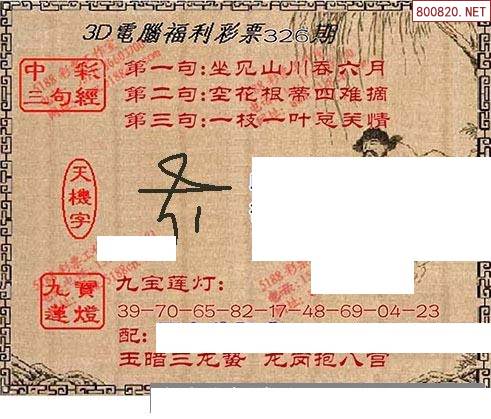 800820.NET
3D電腦福利彩票326期
中彩
三句經
第一句:坐见山川吞六月
第二句:空花根蒂四难摘
第三句:一枝一叶总关情
天機字
九寶
蓮燈
九宝莲灯:
39-70-65-82-17-48-69-04-23
配:
玉暗三龙蛰 龙岗抱八宫